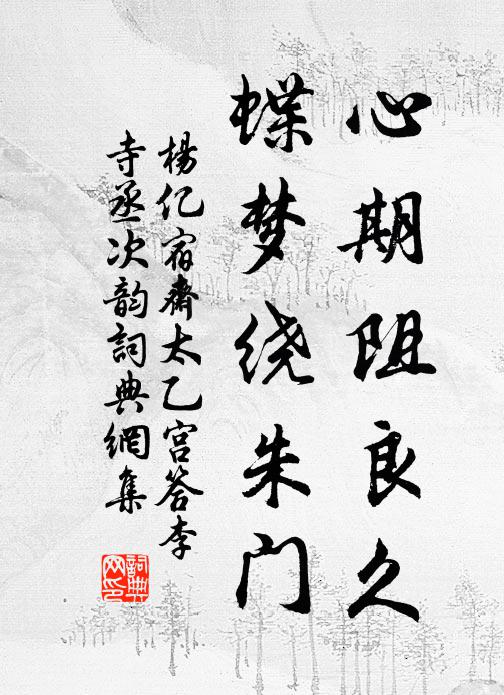 心期阻良久
蝶梦绕朱门
楊亿宿齋太乙宫答李
寺丞次韵詞典網集
詞典
网印